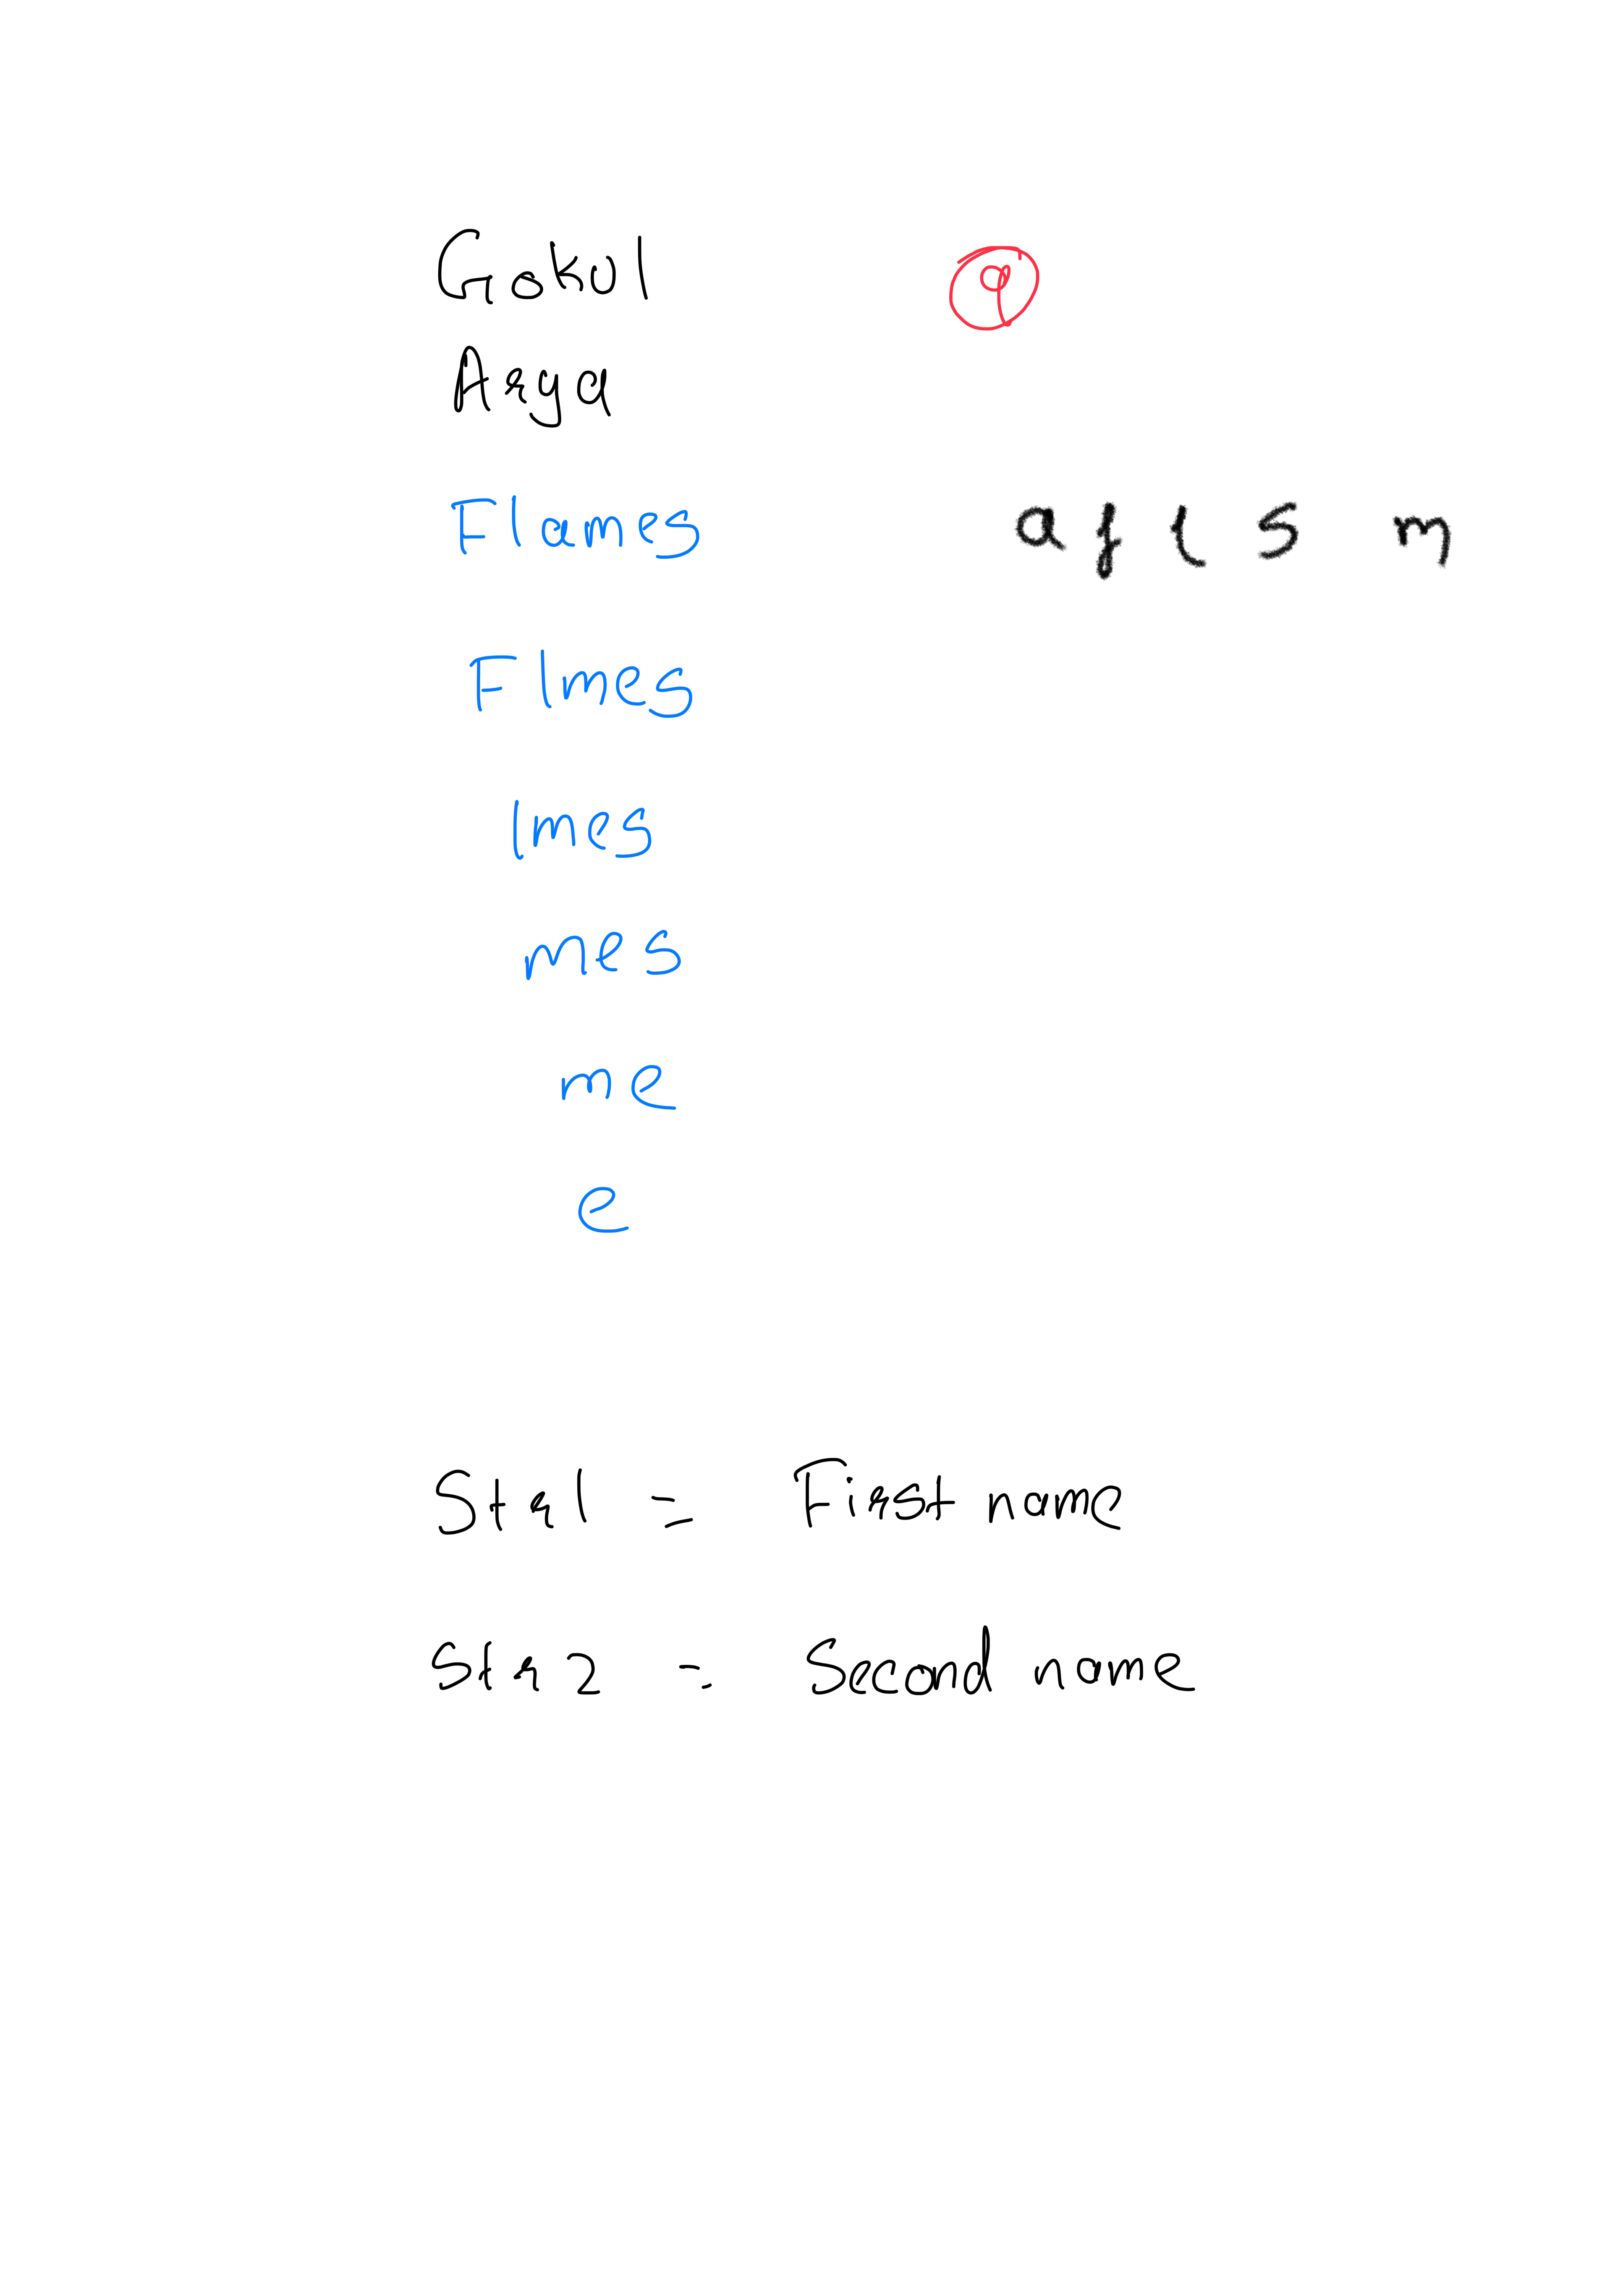 Gokul
9
Arya
Flames
a f l s m
Flmes
lmes
mes
me
e
Str1 = First name
Str2 = Second name